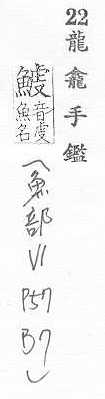 22 龍龕手鑑
鰬音虔魚名
(魚部 VI P57 B7)